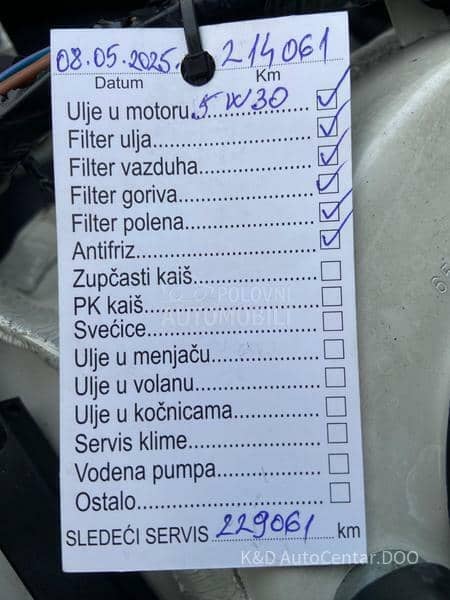 08.05.2025. 214061
Datum Km
Ulje u motoru 5W30
Filter ulja
Filter vazduha
Filter goriva
Filter polena
Antifriz
Zupčasti kaiš
PK kaiš
Svećice
Ulje u menjaču
Ulje u volanu
Ulje u kočnicama
Servis klime
Vodena pumpa
Ostalo
SLEDEĆI SERVIS 229061 km
POLOVNI
AUTOMOBILI
K&D AutoCentar.DOO